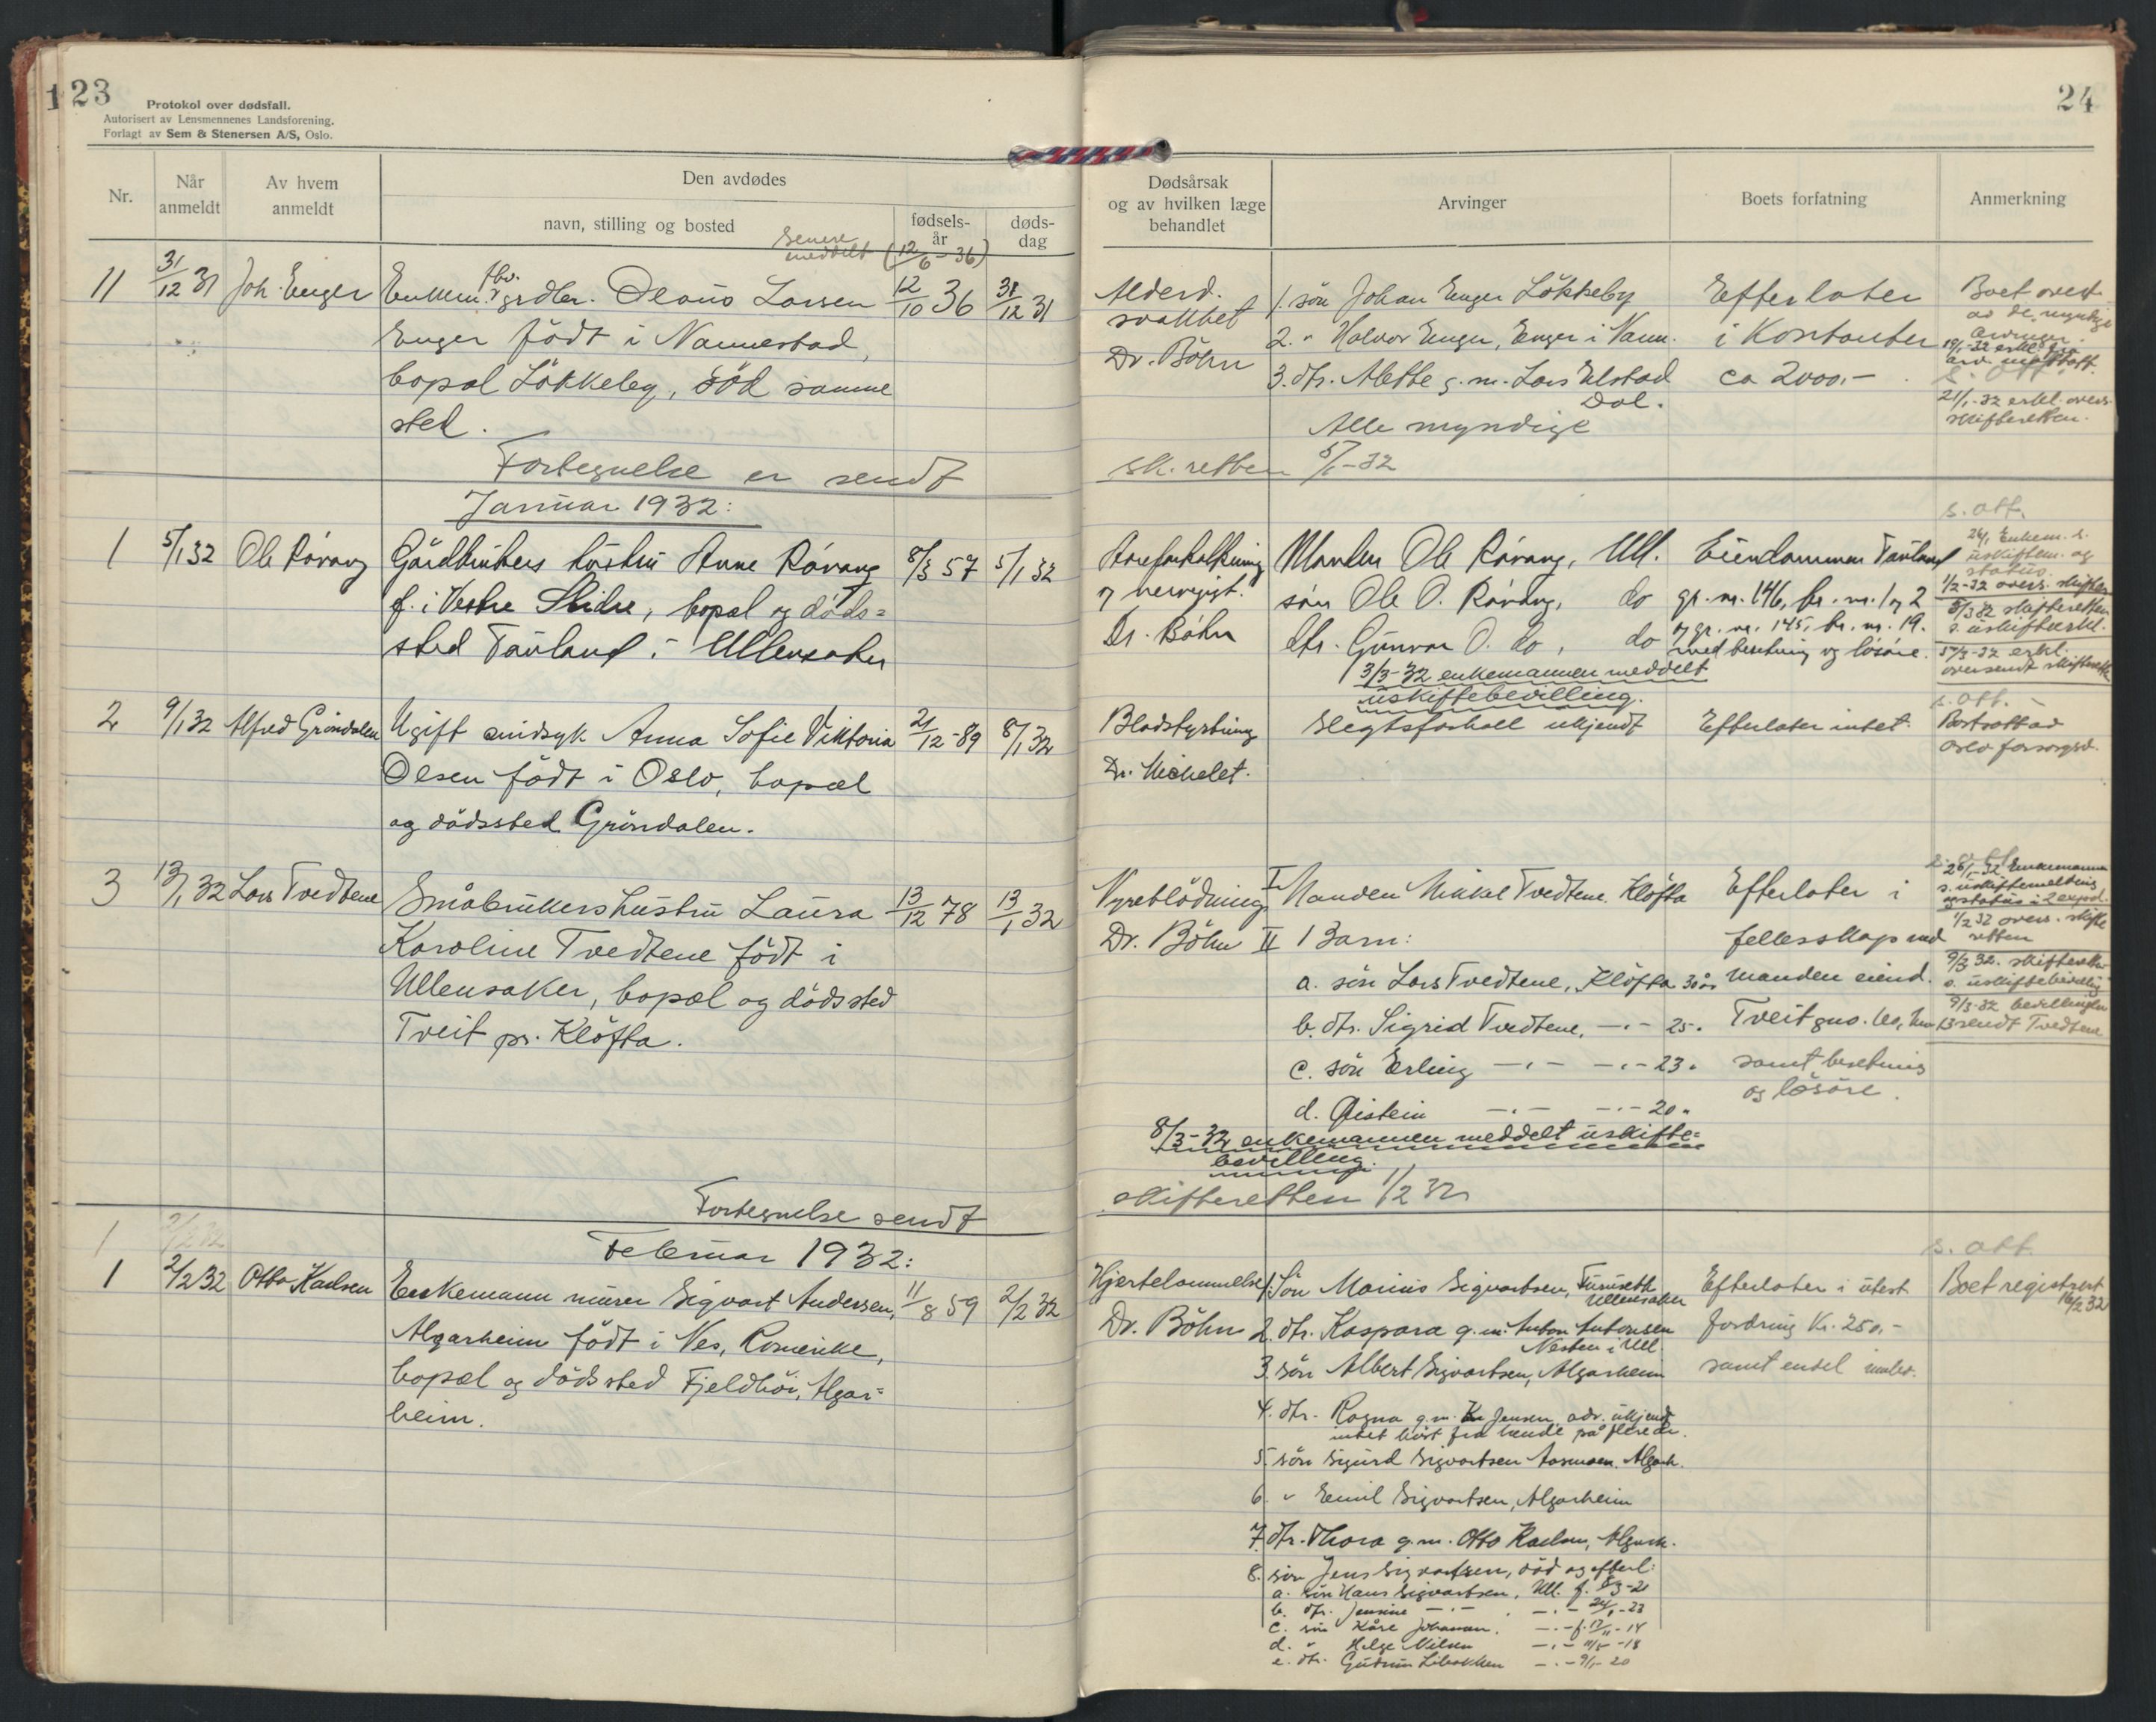 23
Protokol over dødsfall.
Autorisert av Lensmennenes Landsforening.
Forlagt av Sem & Stenersen A/S, Oslo.
Nr.
Når anmeldt
Av hvem anmeldt
Den avdødes
navn, stilling og bosted
fødsels-år
døds-dag
Senere meddelt (12/6-36)
11 31/12 31 Joh. Enger Enkem. fhv. grdbr. Olaus Larsen 12/10 36 31/12 31
Enger född i Nannestad,
bopæl Lökkeby, död samme
sted.
Fortegnelse er sendt
Januar 1932:
1 5/1 32 Ole Råvang Gårdbrukers hustru Anne Råvang 8/3 57 5/1 32
f. i Vestre Slidre, bopæl og döds=
sted Tauland i Ullensaker
2 9/1 32 Alfred Gröndalen Ugift sindsyk Anna Sofie Viktoria 21/12-89 8/1 32
Olsen född i Oslo, bopæl
og dödssted Gröndalen.
3 13/1 32 Lars Tvedtene Småbrukershustru Laura 13/12 78 13/1 32
Karoline Tvedtene född i
Ullensaker, bopæl og dödssted
Tveit pr. Klöfta.
Fortegnelse sendt
Februar 1932:
1 2/2 32
1 2/2 32 Otto Karlsen Enkemann murer Sigvart Andersen, 11/8 59 2/2 32
Algarheim född i Nes, Romerike,
bopæl og dödssted Fjeldhöi, Algar=
heim.
24
Dødsårsak og av hvilken læge behandlet
Arvinger
Boets forfatning
Anmerkning
Alderd. svakhet
Dr. Böhn
1. sön Johan Enger Lökkeby
2. " Halvor Enger, Enger i Nann.
3. dtr. Alette g.m. Lars Elstad
Dal.
Alle myndige
Efterlater
i Kontanter
ca 2000.-
Boet overt.
av de myndige
arvinger.
21/1-32 erkl. overs.
skifteretten.
sk. retten 5/1-32
Åreforkalkning
og nervegigt.
Dr. Böhn
Manden Ole Råvang, Ull.
sön Ole O. Råvang, do
dtr. Gunvor O. do, do
3/3-32 enkemannen meddelt
uskiftebevilling.
Eiendommen Tauland
gr. nr. 146, br. nr. 1 og 2
og gr. nr. 145, br. nr. 19.
med besetning og lösöre.
s. att.
24/1 Enkem. s.
uskiftem. og
status.
1/2-32 overs. skifter.
8/3 32 skifteretten
s. uskifteerkl.
oversendt skifterett
Blodstyrtning
Dr. Michelet.
Slegtsforhold ukjendt
Efterlater intet.
s. att.
Bortsatt av
Oslo forsorgsv.
Nyreblödning
Dr. Böhn
I Manden Mikkel Tvedtene Klöfta
II Barn:
a. sön Lars Tvedtene, Klöfta 30 år
b. dtr. Sigrid Tvedtene, -"- 25 "
c. sön Erling -"- -"- 23 "
d. Øistein -"- -"- 20 "
Efterlater i
fellesskap med
manden eiend.
Tveit
samt besetning
og lösöre.
28/1-32 Enkemannen
s. uskiftemelding
og status i 2 expd.
1/2 32 overs. skifte
retten
9/3 32. skifteretten
s. uskiftebevilling
9/3-32 bevillingen
sendt Tvedtene
8/3-32 enkemannen meddelt uskifte=
bevilling.
skifteretten 1/2 32
Hjertelammelse
Dr. Böhn
1. Sön Marius Sigvartsen, Furuseth
Ullensaker
2. dtr. Kaspara g.m. Anton Antonsen
Nesten i Ull.
3. sön Albert Sigvartsen, Algarheim
4. dtr. Ragna g.m. Jensen, adr. ukjendt
intet hört fra hende på flere år.
5. sön Sigurd Sigvartsen Aasmoen, Algarh.
6. " Emil Sigvartsen, Algarheim
7. dtr. Thora g.m. Otto Karlsen, Algarh.
8. sön Jens Sigvartsen, död og efterl:
a. sön Hans Sigvartsen, Ull. f. 8/3-21
b. dtr. Jensine -"- -"- 24/1-23
c. sön Kåre Johansen. -"- f. 17/11-14
d. " Helge Nilsen -"- 11/5-18
e. dtr. Gudrun -"- 9/1-20
Efterlater i utest.
fordring Kr. 250,-
samt endel
s. att.
Boet registrert
16/2 32